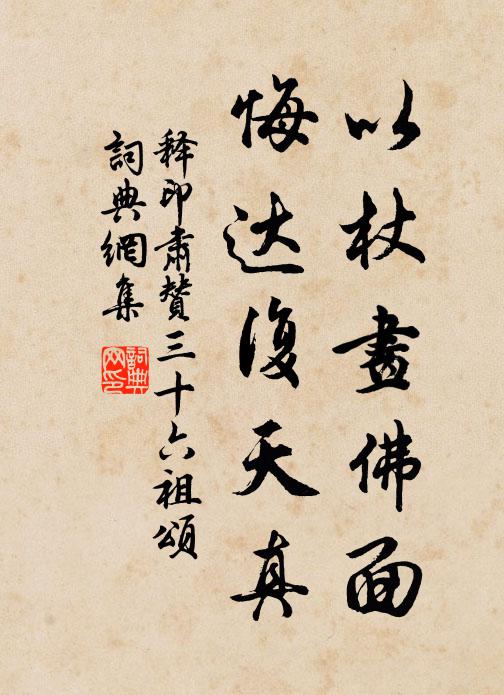 以杖畫佛面
悔达復天真
释印肃贊三十六祖頌
詞典網集
詞典网印